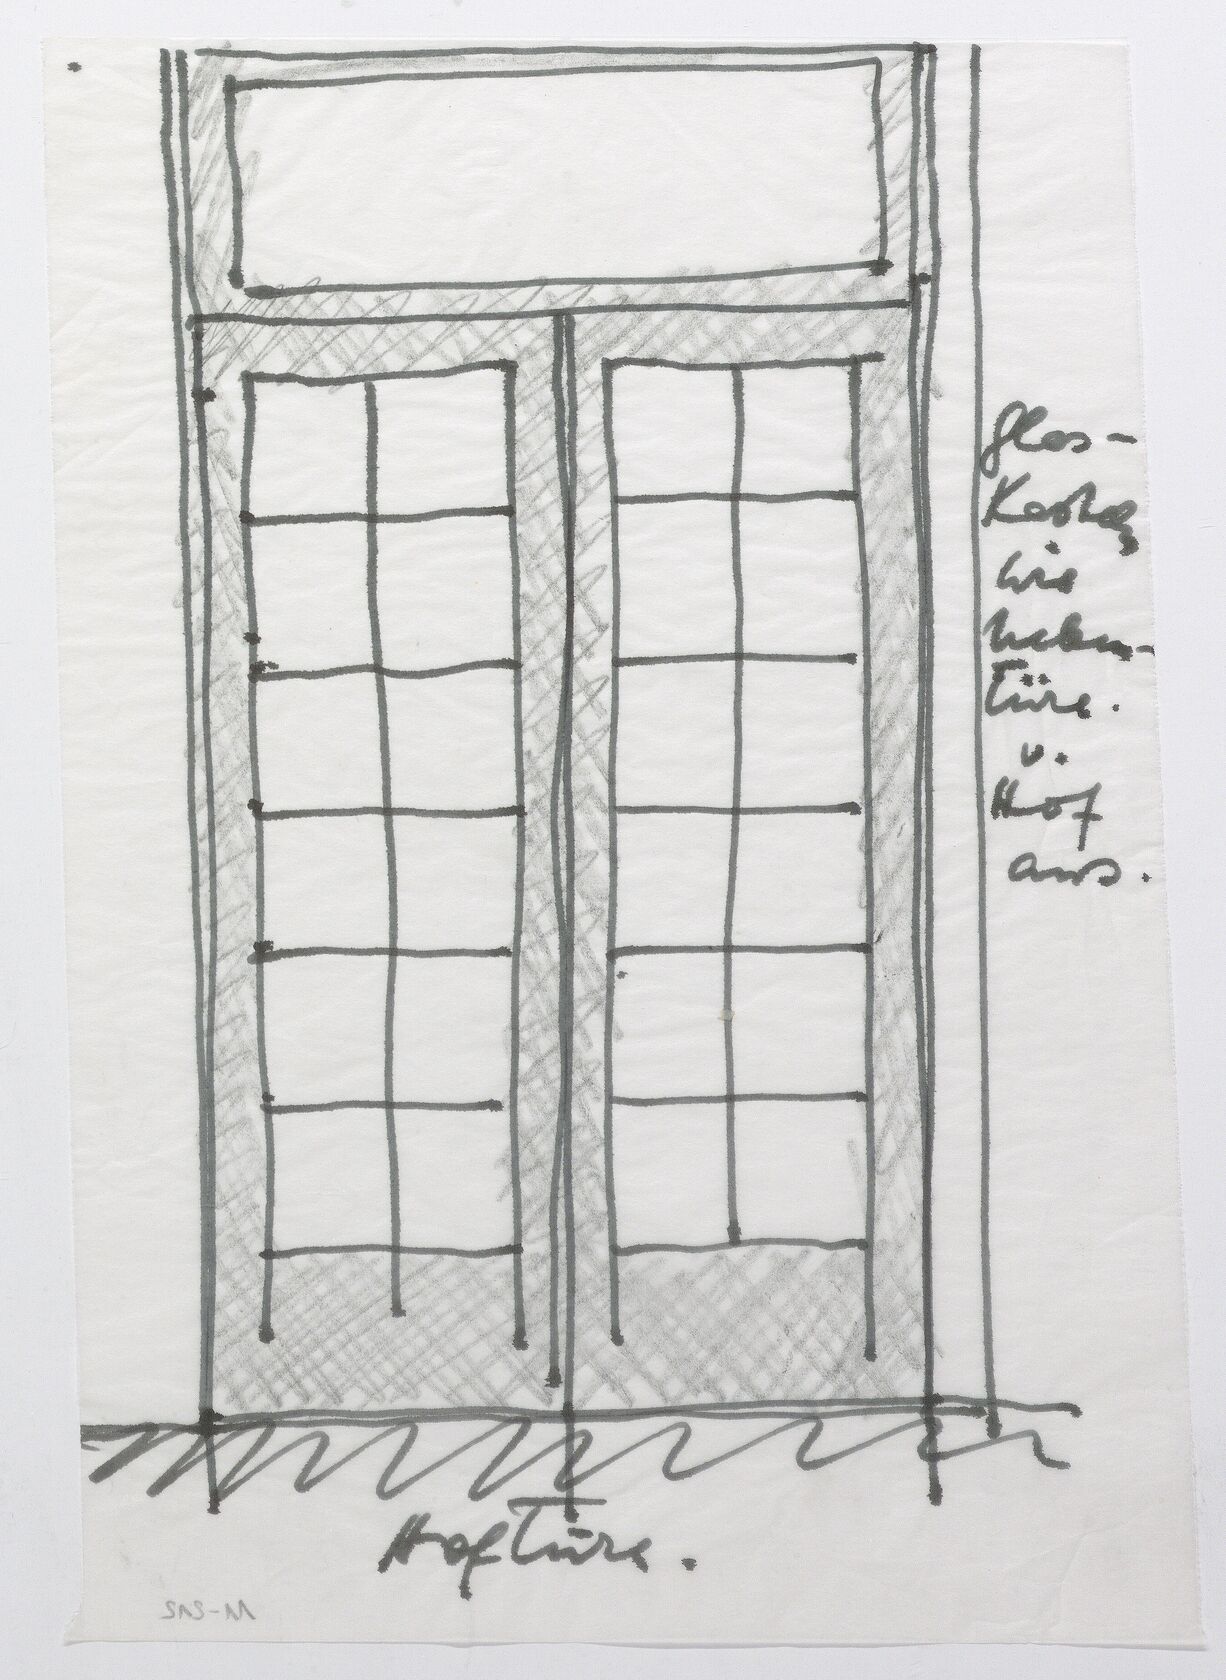 Glas-
Kasten
wie
neben-
türe.
u.
Hof
aus.
HofTüre.